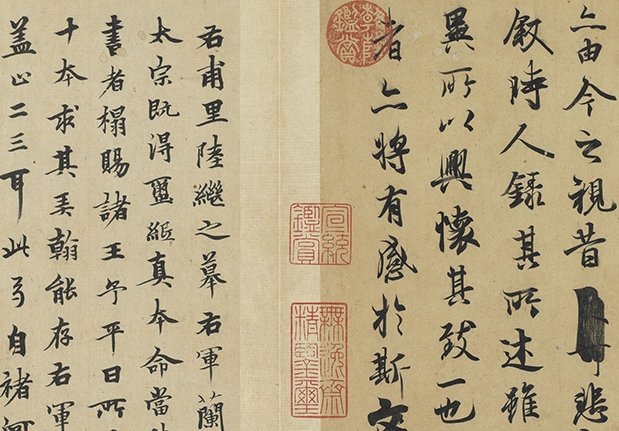 亦由今之視昔悲
敘時人錄其所述雖
異所以興懷其致一也
者亦將有感於斯文
宣統鑑賞
無逸齋精鑒璽
右甫里陸繼之摹右軍蘭
太宗既得蠒紙真本命當
書者搨賜諸王予平日所
十本求其弄翰能存右軍
蓋止二三耳此弓自褚河